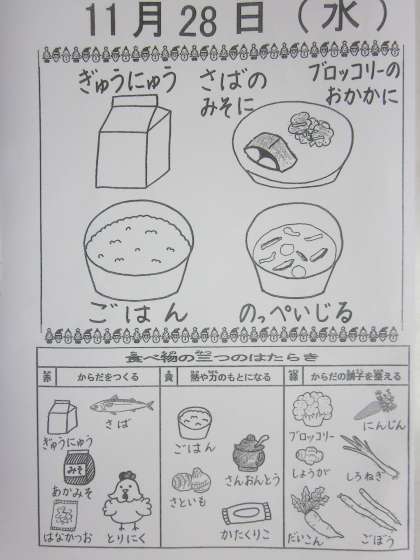 11月28日（水）
ぎゅうにゅう
さばの
みそに
ブロッコリーの
おかかに
ごはん
のっぺいじる
食べ物の三つのはたらき
赤 からだをつくる
黄 熱や力のもとになる
緑 からだの調子を整える
ぎゅうにゅう
さば
あかみそ
みそ
はなかつお
とりにく
ごはん
さといも
さんおんとう
かたくりこ
ブロッコリー
にんじん
しょうが
しろねぎ
だいこん
ごぼう